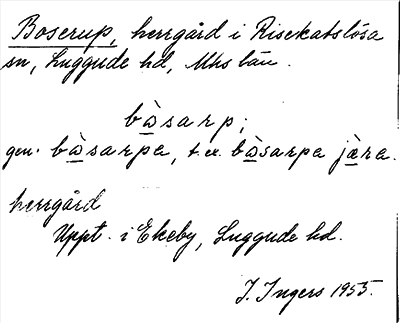 Boserup, herrgård i Risekatslösa
sn, Luggude hd, Mhs län.
bàsarp;
gen. bàsarpa, t.ex. bàsarpa jæra.
herrgård
Uppt. i Ekeby, Luggude hd.
I. Ingers 1955.